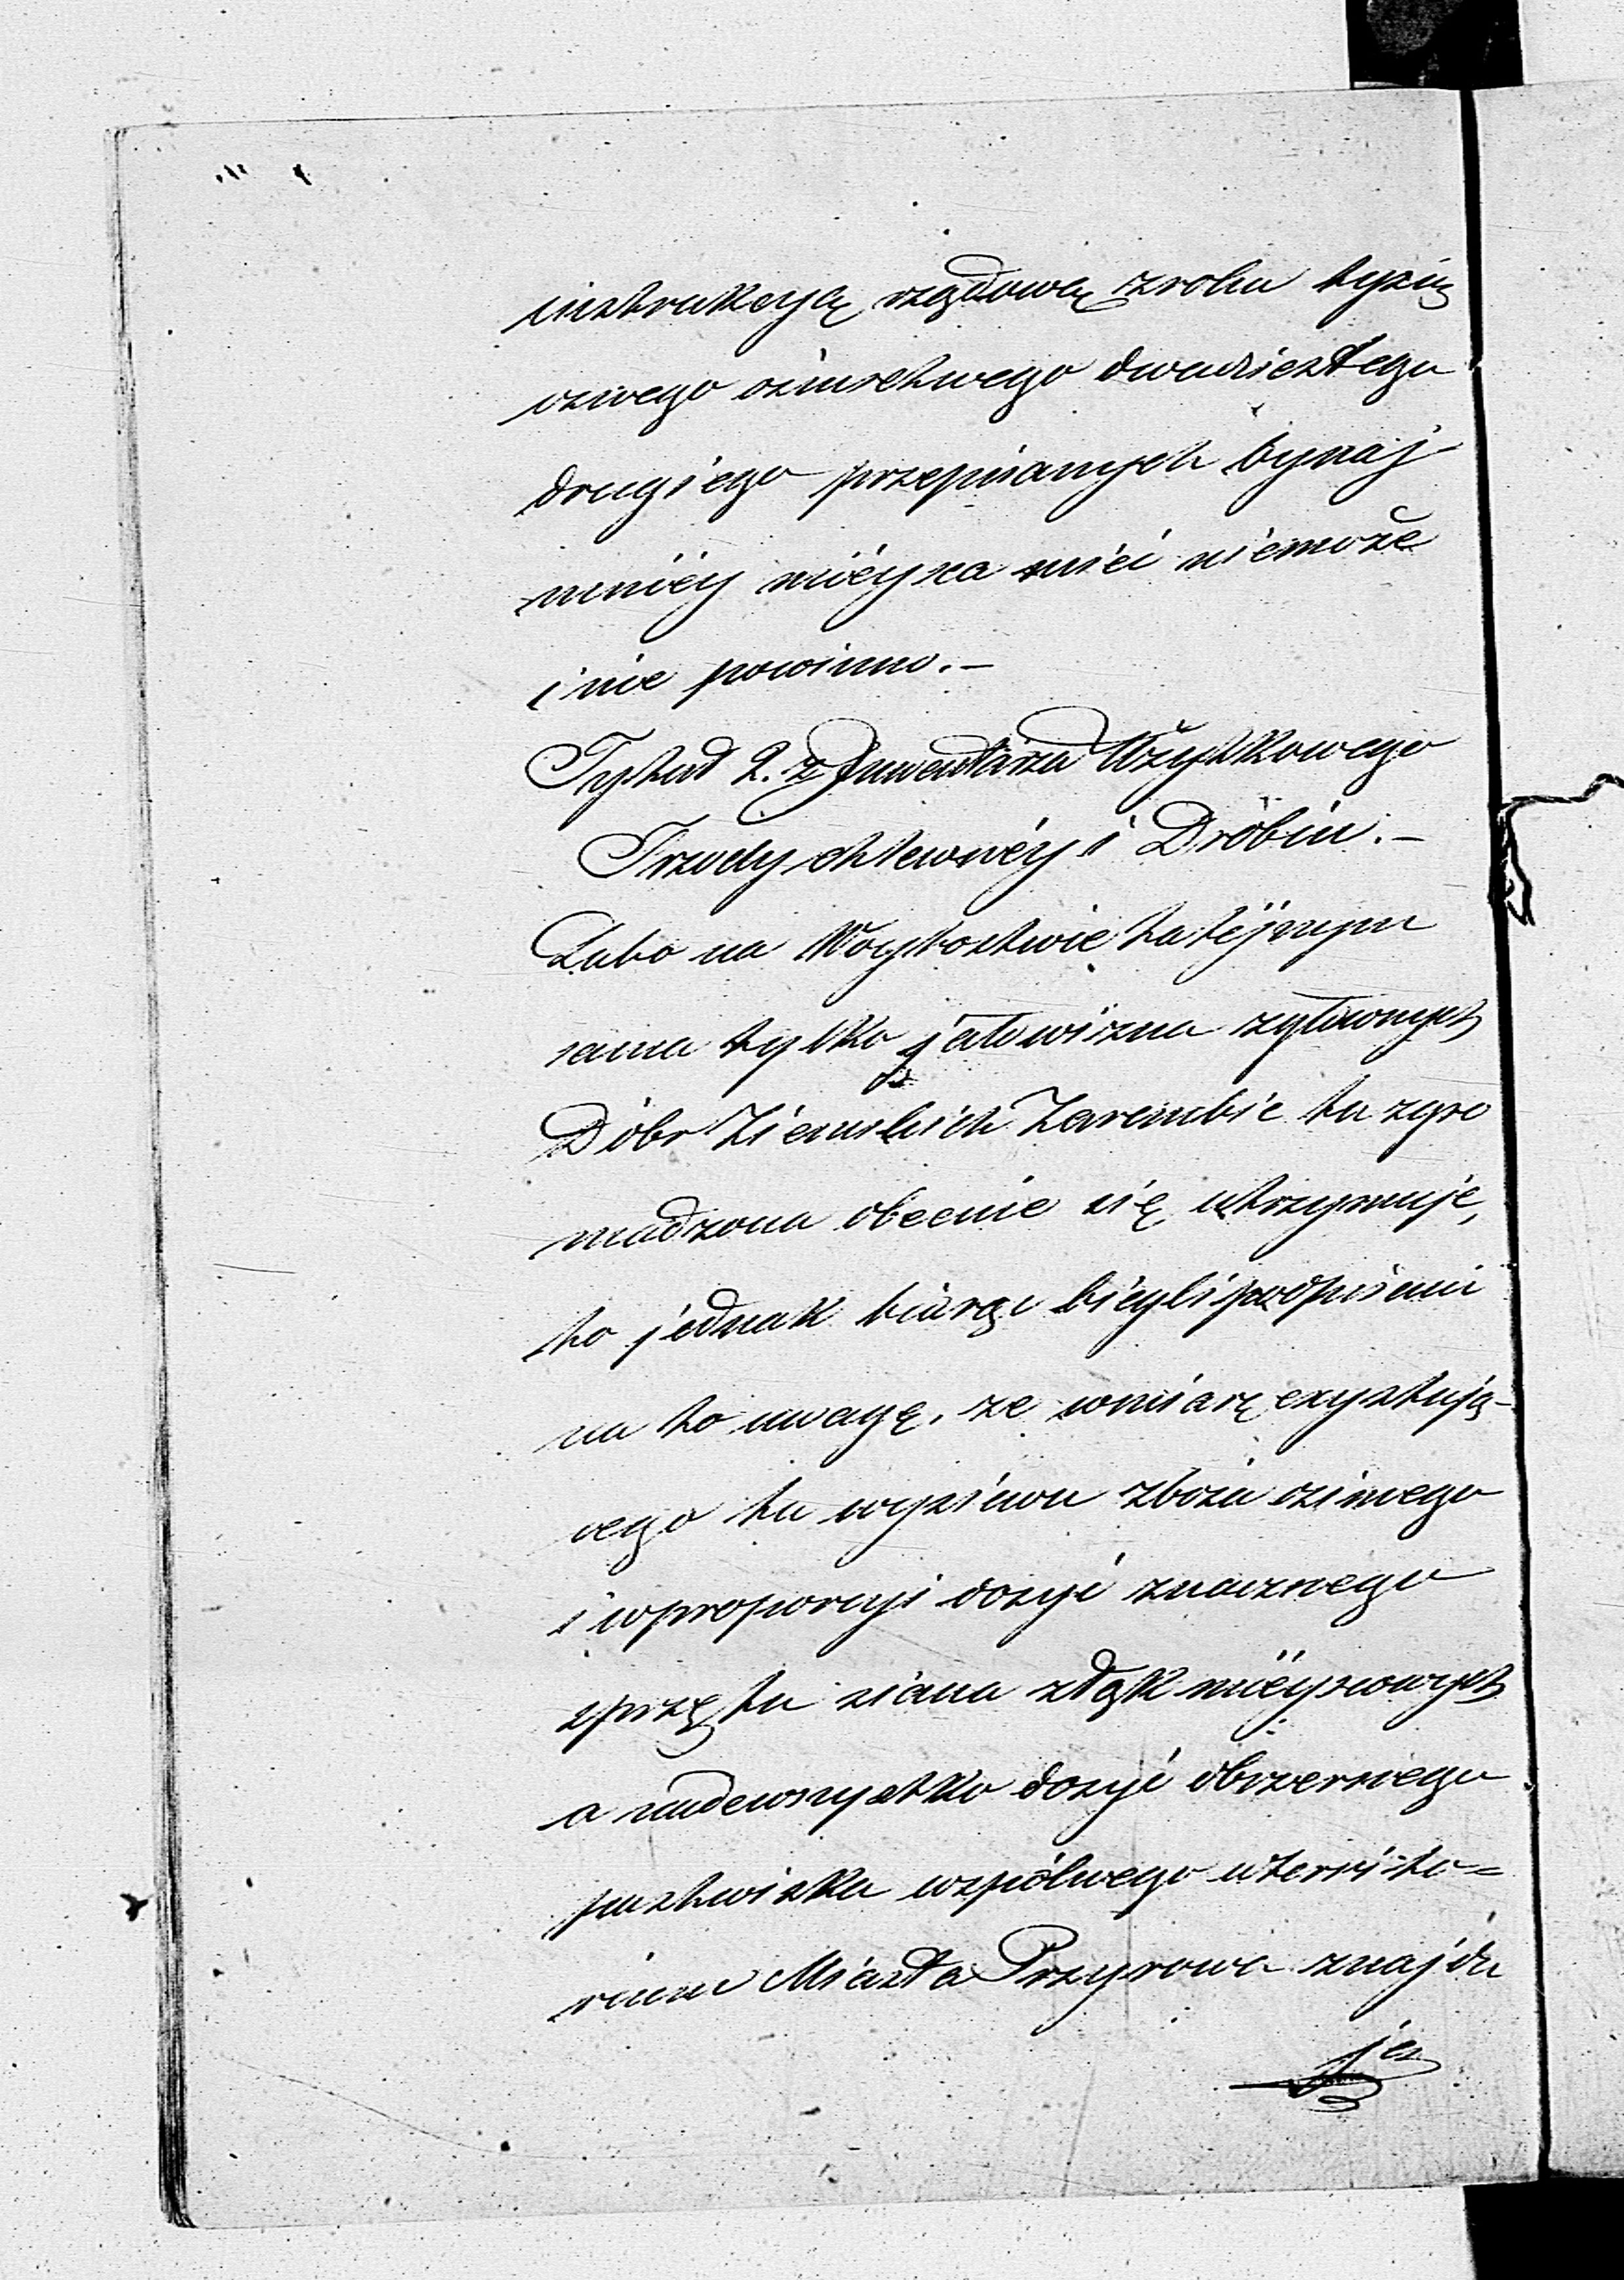 instrukcyą rządową z roku tysią
cznego ośmsetnego dwudziestego
drugiego przepisanych bynaj
mniéy miéysca mieć niemoże
i nie powinno.–
Tytuł 2. z Inwentarza Użytkowego
Trzody chlewnéy i Dróbiu.–
Lubo na Woytostwie tutéjszym
sama tylko jałowizna zgłównych
Dóbr Ziemskich Zarembic tu zgro
madzona obecnie się utrzymuje,
to jednak biorąc biegli podpisani
na to uwagę, że wmiarę exystują-
cego tu wysiewu zboża ozimego
i wproporcyi dosyć znacznego
sprzętu siana z łąk miéyscowych
a nadewszystko dosyć obszernego
pastwiska wspólnego w territo=
rium Miasta Przyrowa znajdu
jeą